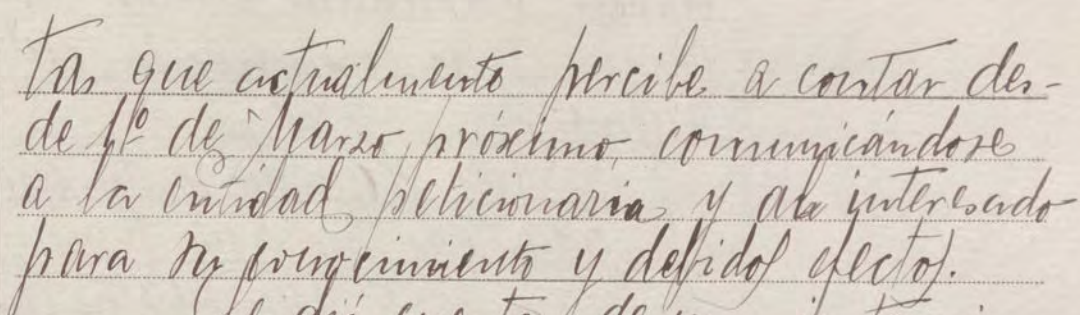 tas que actualmente percibe a contar des-
de 1º de Marzo próximo, comunicándose
a la entidad peticionaria y al interesado
para su conocimiento y debidos efectos.